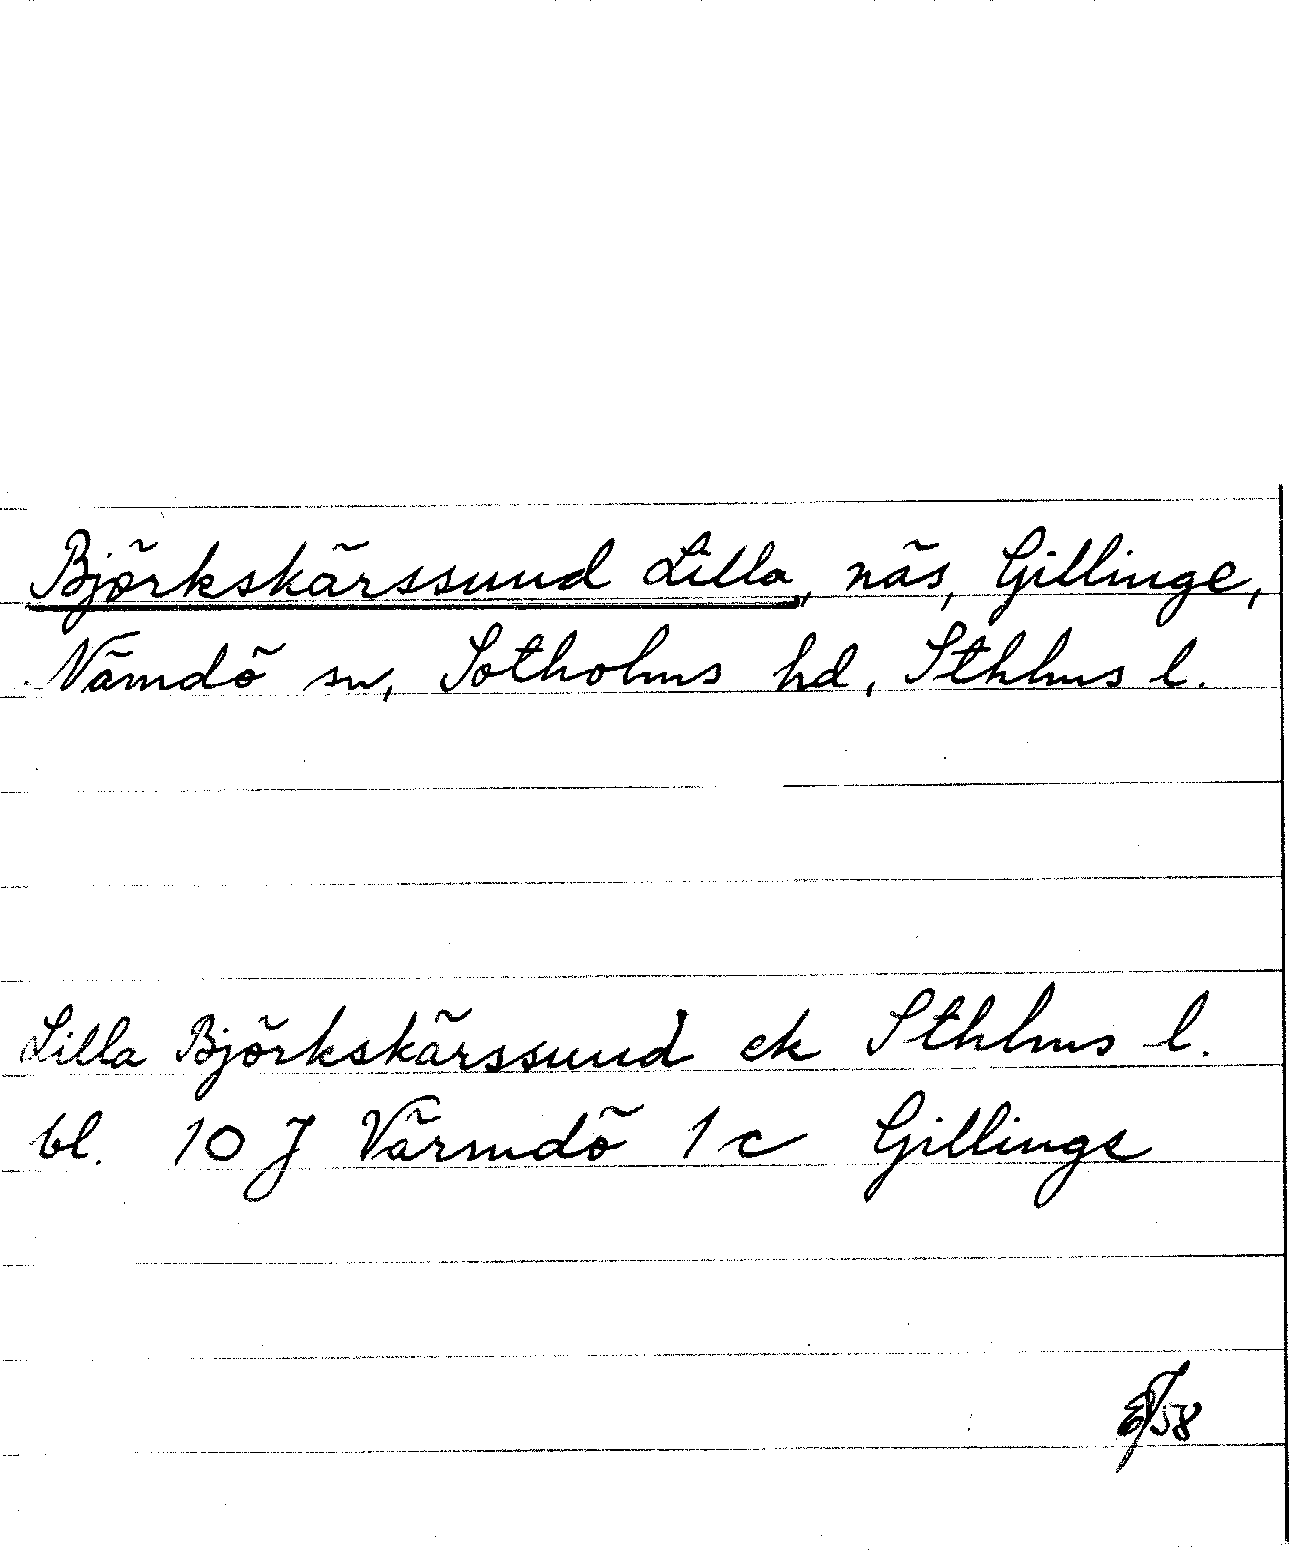 Björkskärssund Lilla, näs, Gillinge,
Nämdö sn, Sotholms hd, Sthlms l.
Lilla Björkskärssund ek Sthlms l.
bl. 10 J Värmdö 1 c Gillinge
/58